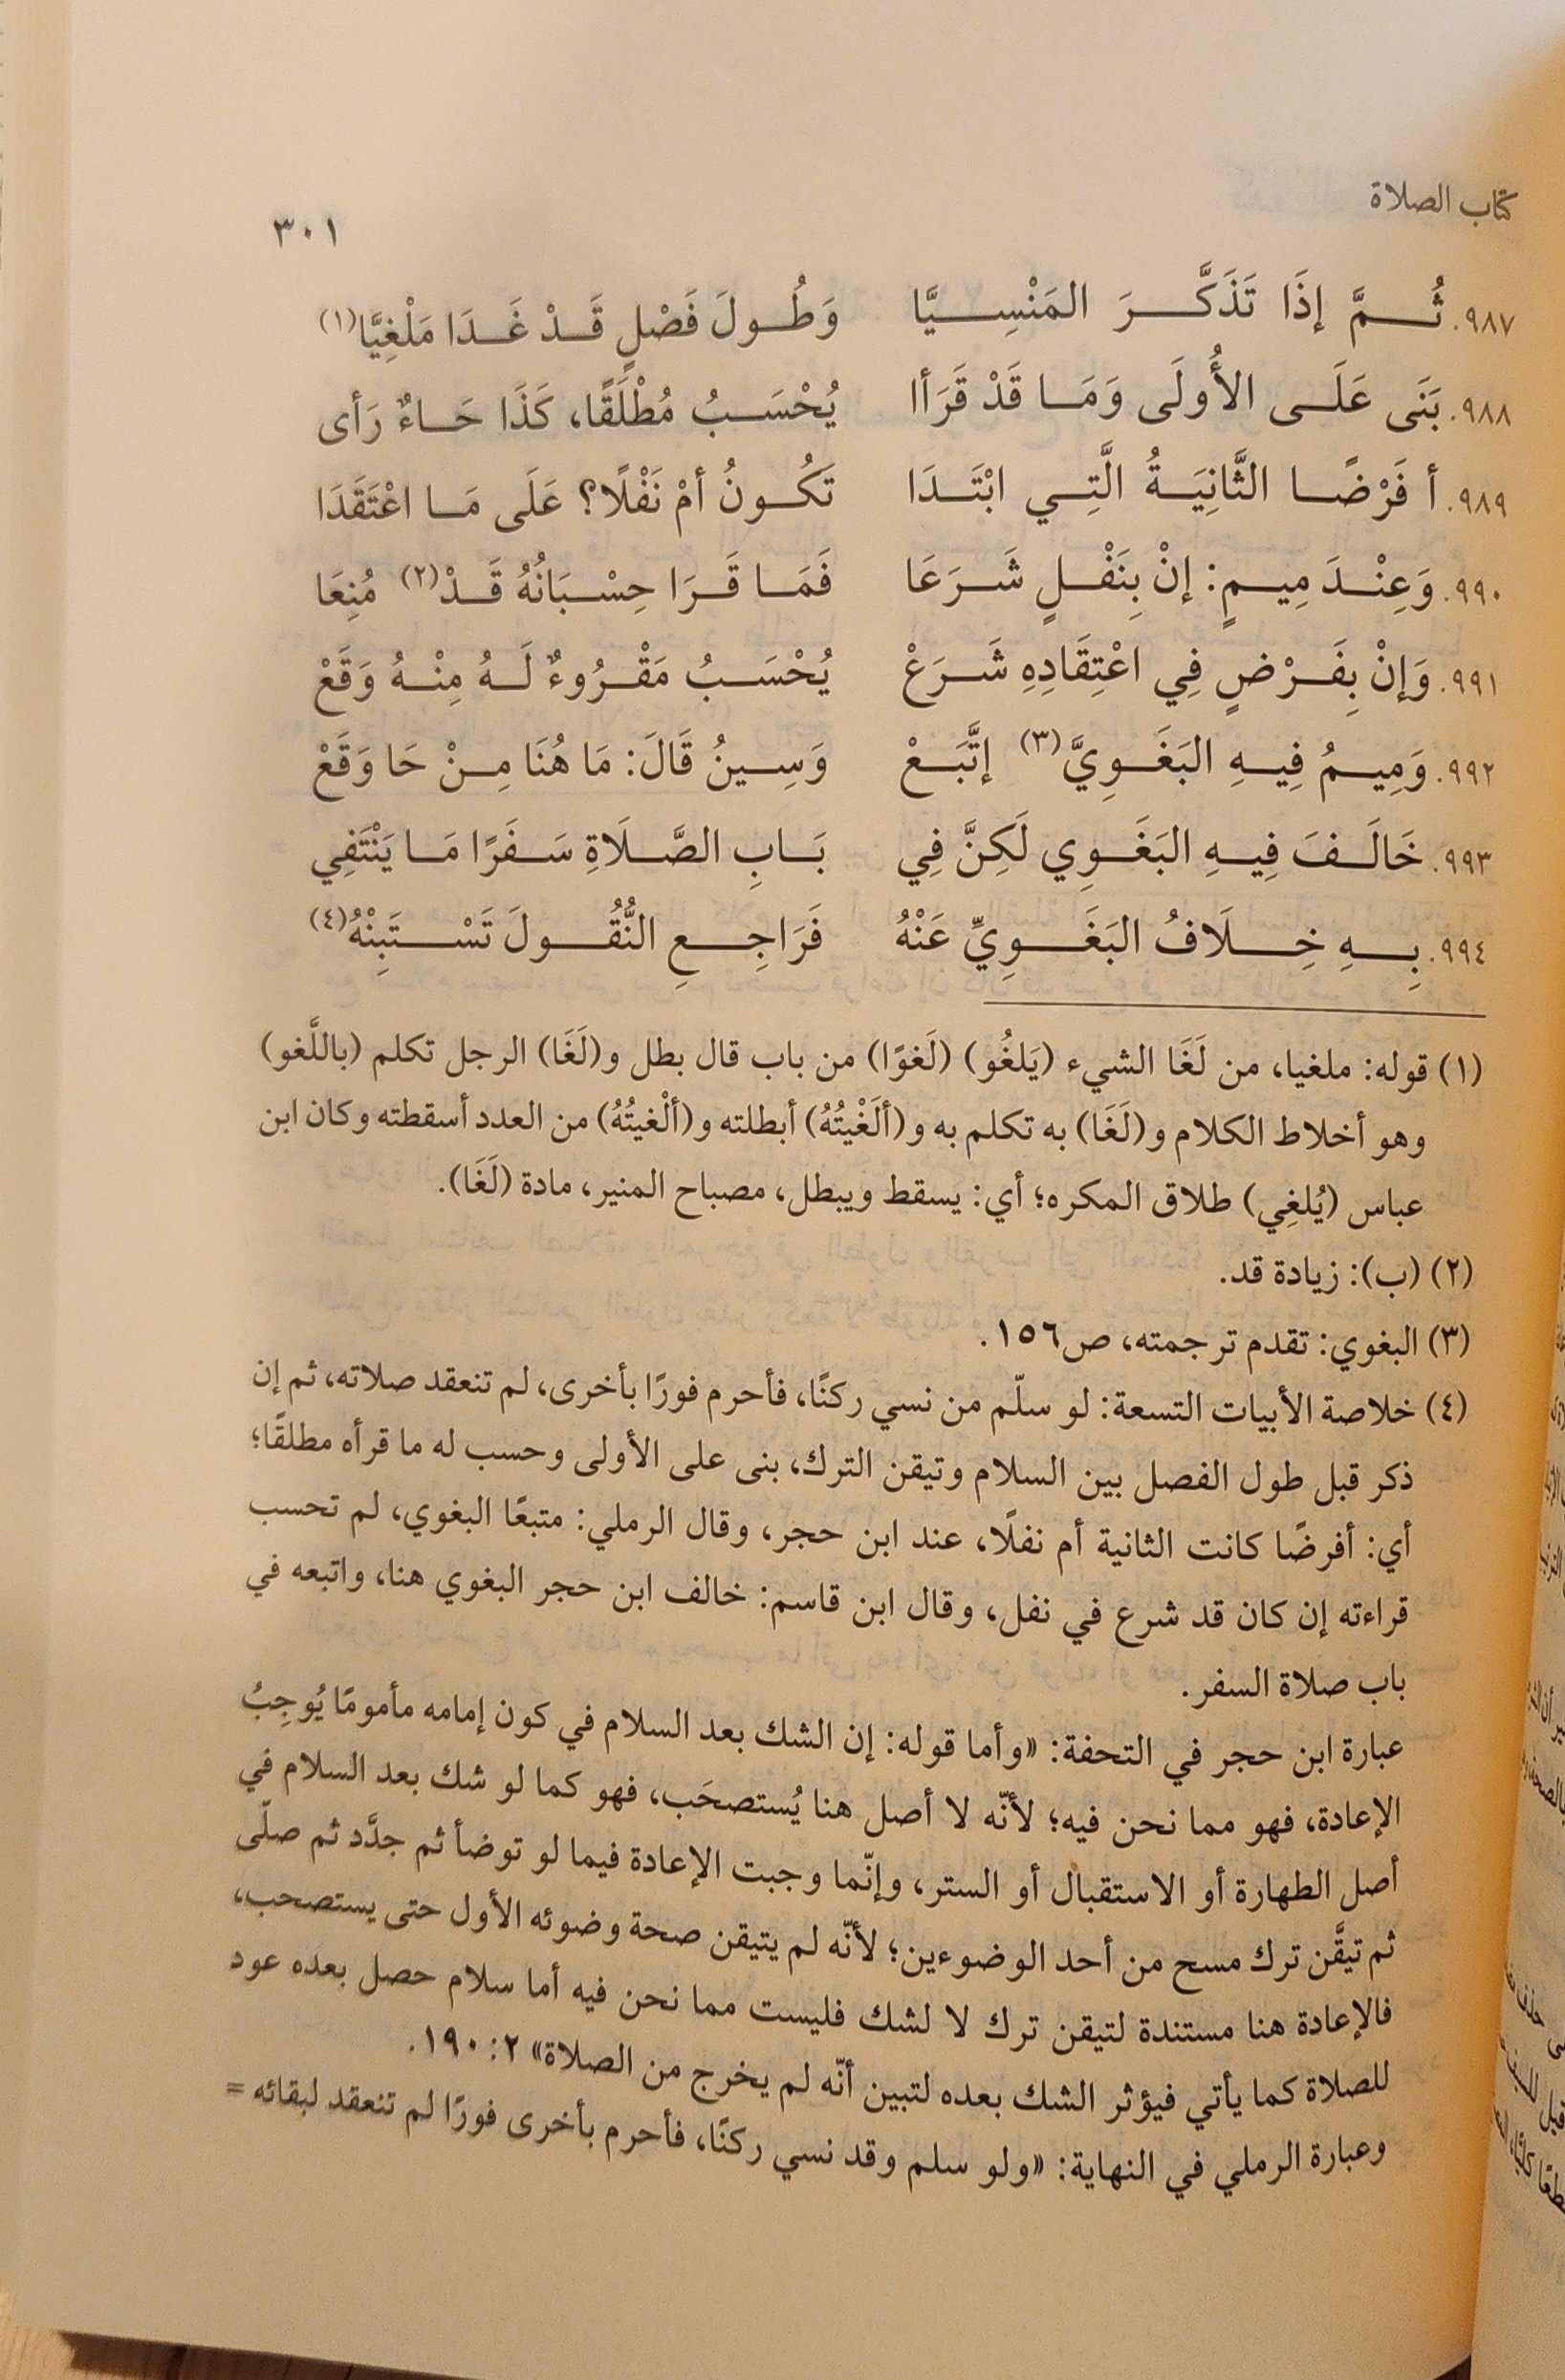 كتاب الصلاة
٣٠١
٩٨٧. ثُمَّ إذَا تَذَكَّرَ المَنْسِيَّا وَطُولَ فَصْلٍ قَدْ غَدَا مَلْغِيَّا(١)
٩٨٨. بَنَى عَلَى الأُولَى وَمَا قَدْ قَرَأا يُحْسَبُ مُطْلَقًا، كَذَا حَاءٌ رَأى
٩٨٩. أ فَرْضًا الثَّانِيَةُ الَّتِي ابْتَدَا تَكُونُ أمْ نَفْلًا؟ عَلَى مَا اعْتَقَدَا
٩٩٠. وَعِنْدَ مِيمٍ: إنْ بِنَفْلٍ شَرَعَا فَمَا قَرَا حِسْبَانُهُ قَدْ(٢) مُنِعَا
٩٩١. وَإنْ بِفَرْضٍ فِي اعْتِقَادِهِ شَرَعْ يُحْسَبُ مَقْرُوءٌ لَهُ مِنْهُ وَقَعْ
٩٩٢. وَمِيمُ فِيهِ البَغَوِيَّ(٣) إتَّبَعْ وَسِينُ قَالَ: مَا هُنَا مِنْ حَا وَقَعْ
٩٩٣. خَالَفَ فِيهِ البَغَوِي لَكِنَّ فِي بَابِ الصَّلَاةِ سَفَرًا مَا يَنْتَفِي
٩٩٤. بِهِ خِلَافُ البَغَوِيِّ عَنْهُ فَرَاجِعِ النُّقُولَ تَسْتَبِنْهُ(٤)
(١) قوله: ملغيا، من لَغَا الشيء (يَلغُو) (لَغوًا) من باب قال بطل و(لَغَا) الرجل تكلم (باللَّغو)
وهو أخلاط الكلام و(لَغَا) به تكلم به و(ألَغْيتُهُ) أبطلته و(ألْغيتُهُ) من العدد أسقطته وكان ابن
عباس (يُلغِي) طلاق المكره؛ أي: يسقط ويبطل، مصباح المنير، مادة (لَغَا).
(٢) (ب): زيادة قد.
(٣) البغوي: تقدم ترجمته، ص١٥٦.
(٤) خلاصة الأبيات التسعة: لو سلّم من نسي ركنًا، فأحرم فورًا بأخرى، لم تنعقد صلاته، ثم إن
ذكر قبل طول الفصل بين السلام وتيقن الترك، بنى على الأولى وحسب له ما قرأه مطلقًا؛
أي: أفرضًا كانت الثانية أم نفلًا، عند ابن حجر، وقال الرملي: متبعًا البغوي، لم تحسب
قراءته إن كان قد شرع في نفل، وقال ابن قاسم: خالف ابن حجر البغوي هنا، واتبعه في
باب صلاة السفر.
عبارة ابن حجر في التحفة: «وأما قوله: إن الشك بعد السلام في كون إمامه مأمومًا يُوجِبُ
الإعادة، فهو مما نحن فيه؛ لأنّه لا أصل هنا يُستصحَب، فهو كما لو شك بعد السلام في
أصل الطهارة أو الاستقبال أو الستر، وإنّما وجبت الإعادة فيما لو توضأ ثم جدَّد ثم صلّى
ثم تيقَّن ترك مسح من أحد الوضوءين؛ لأنّه لم يتيقن صحة وضوئه الأول حتى يستصحب،
فالإعادة هنا مستندة لتيقن ترك لا لشك فليست مما نحن فيه أما سلام حصل بعده عود
للصلاة كما يأتي فيؤثر الشك بعده لتبين أنّه لم يخرج من الصلاة» ٢: ١٩٠.
وعبارة الرملي في النهاية: «ولو سلم وقد نسي ركنًا، فأحرم بأخرى فورًا لم تنعقد لبقائه =